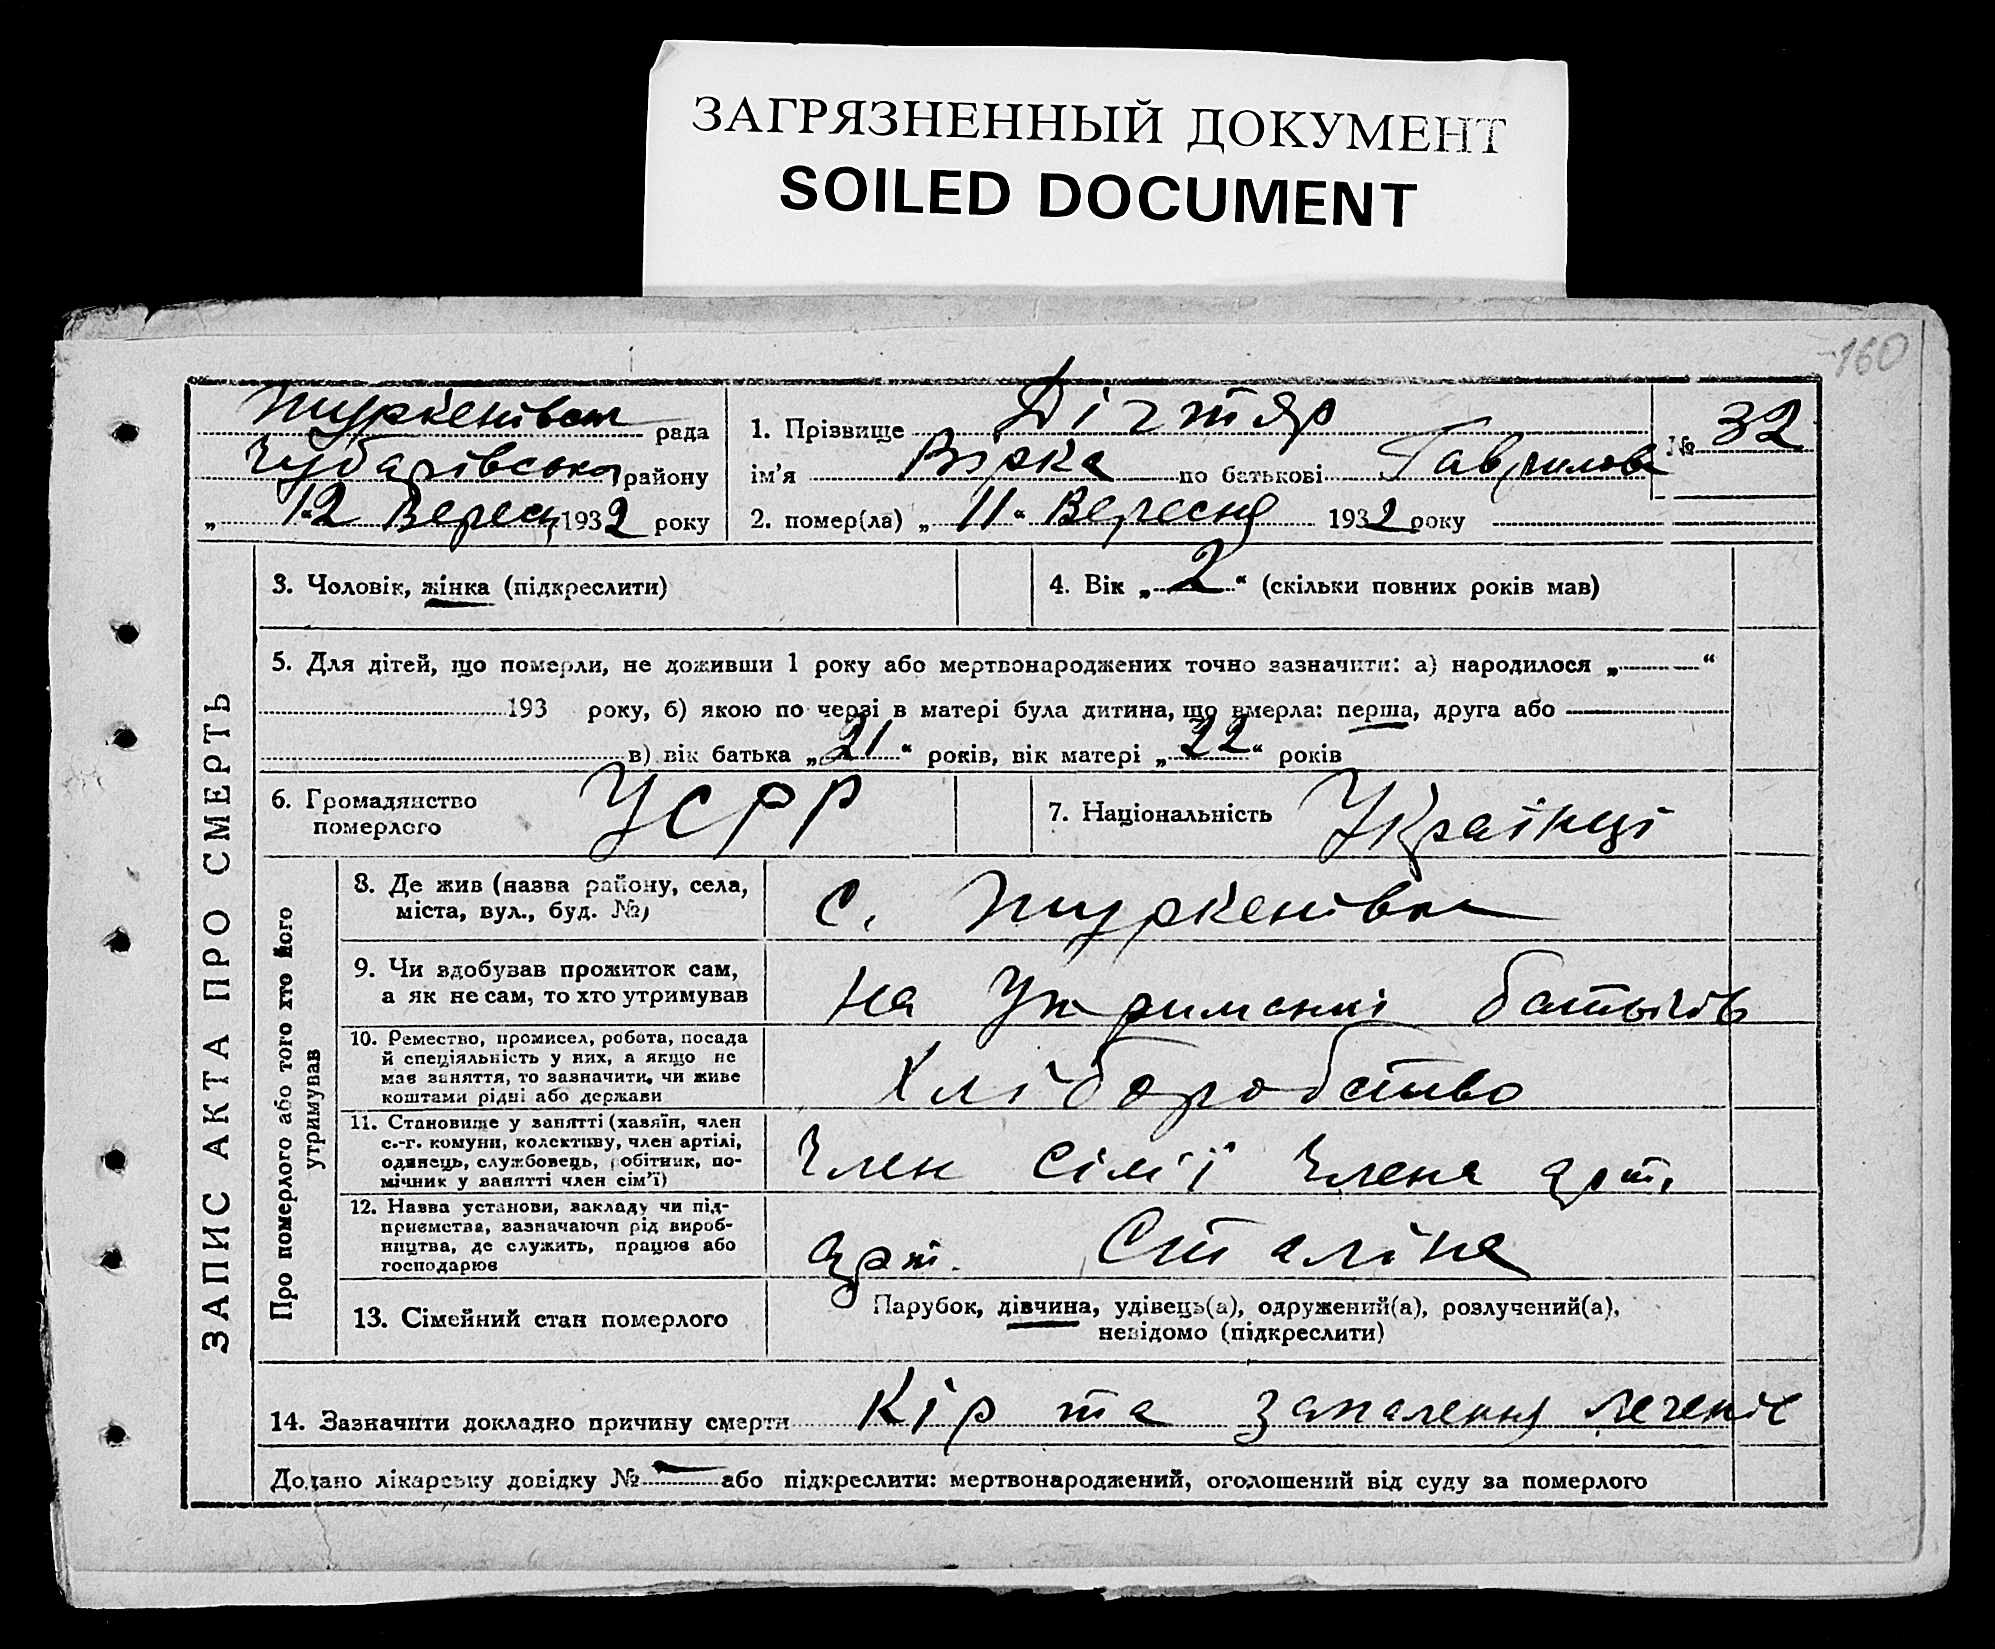 ЗАГРЯЗНЕННЫЙ ДОКУМЕНТ
SOILED DOCUMENT
160
Туркенівська рада
Чубарівського району
„ 12 Вересн 1932 року
1. Прізвище Дігтяр
ім’я Вірка по батькові Гаврилов
№ 32
2. помер(ла) „ 11 “ Вересня 1932 року
ЗАПИС АКТА ПРО СМЕРТЬ
3. Чоловік, жінка (підкреслити)
4. Вік „ 2 “ (скільки повних років мав)
5. Для дітей, що померли, не доживши 1 року або мертвонароджених точно зазначити: а) народилося „ “
193 року, б) якою по черзі в матері була дитина, що вмерла: перша, друга або
в) вік батька „ 21 “ років, вік матері „ 22 “ років
6. Громадянство
померлого
УСРР
7. Національність Українці
Про померлого або того хто його
утримував
8. Де жив (назва району, села,
міста, вул., буд. №)
с. Туркенівка
9. Чи здобував прожиток сам,
а як не сам, то хто утримував
на Утриманні батьків
10. Ремество, промисел, робота, посада
й спеціяльність у них, а якщо не
має заняття, то зазначити, чи живе
коштами рідні або держави
Хліборобство
11. Становище у занятті (хазяїн, член
с.-г. комуни, колективу, член артілі,
одинець, службовець, робітник, по-
мічник у занятті член сім’ї)
Член сім'ї члена арт.
12. Назва установи, закладу чи під-
приємства, зазначаючи рід вироб-
ництва, де служить, працює або
господарює
арт. Сталіна
13. Сімейний стан померлого
Парубок, дівчина, удівець(а), одружений(а), розлучений(а),
невідомо (підкреслити)
14. Зазначити докладно причину смерти Кір та запалення легенів
Додано лікарську довідку № або підкреслити: мертвонароджений, оголошений від суду за померлого